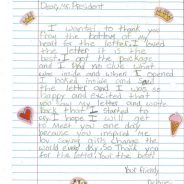 Dear, Mr. President
I wanted to thank you
from the bottom of my
heart for the letter. I loved
the letter it is the
best. I got the package
and I had no clue what
was inside and when I opened
I looked inside and saw
the letter and I was so
happy and excited that
you saw my letter and wrote
back that I started to
cry. I hope I will get
to meet you one day
because you inspire me
by saying girls change the
world every day. So thank you
for the letter! Your the best!
Your friend,